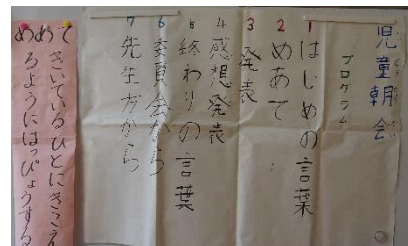 児童朝会
プログラム
1 はじめの言葉
2 めあて
3 発表
4 感想発表
5 終わりの言葉
6 委員会から
7 先生方から
めあて
きいているひとにきこえ
るようにはっぴょうする